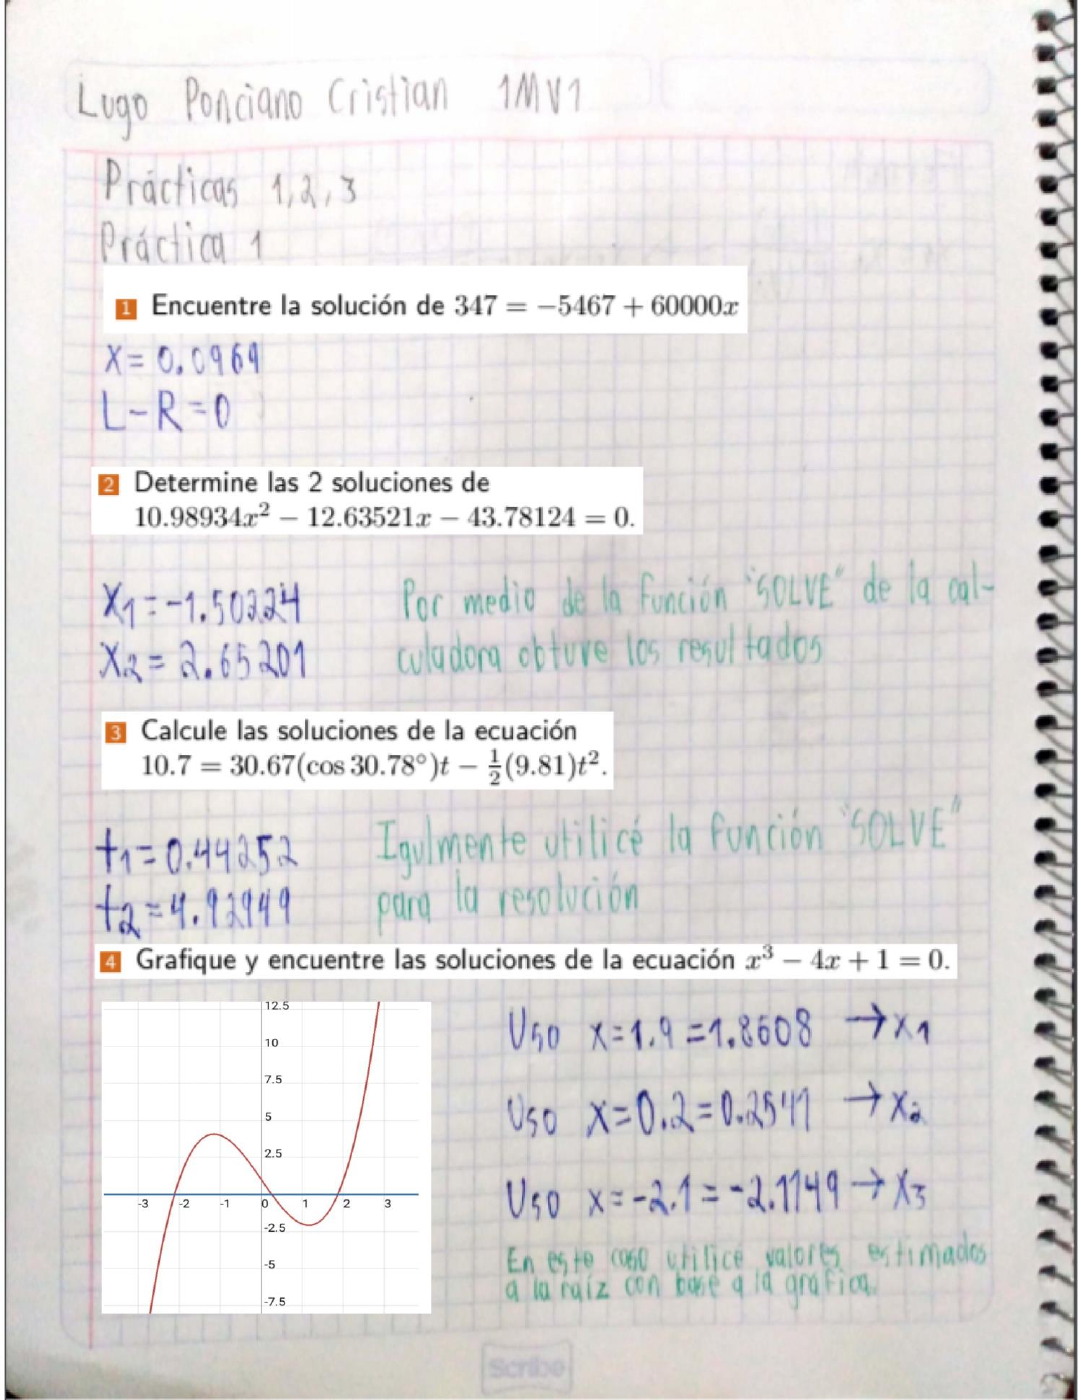 Lugo Ponciano Cristian 1MV1
Prácticas 1,2,3
Práctica 1
1 Encuentre la solución de 347 = −5467 + 60000x
X = 0.0969
L-R=0
2 Determine las 2 soluciones de
10.98934x² − 12.63521x − 43.78124 = 0.
X1 = -1.50224
X2 = 2.65201
Por medio de la función "SOLVE" de la cal-
culadora obtuve los resultados
3 Calcule las soluciones de la ecuación
10.7 = 30.67(cos 30.78°)t − ½(9.81)t².
t1=0.44252
t2=4.92949
Igulmente utilicé la función "SOLVE"
para la resolución
4 Grafique y encuentre las soluciones de la ecuación x³ − 4x + 1 = 0.
12.5
10
7.5
5
2.5
-3 -2 -1 0 1 2 3
-2.5
-5
-7.5
Uso x=1.9 =1.8608 →x1
Uso x=0.2=0.2541 →x2
Uso x=-2.1=-2.1149→x3
En este caso utilice valores estimados
a la raíz con base a la grafica.
Scribe